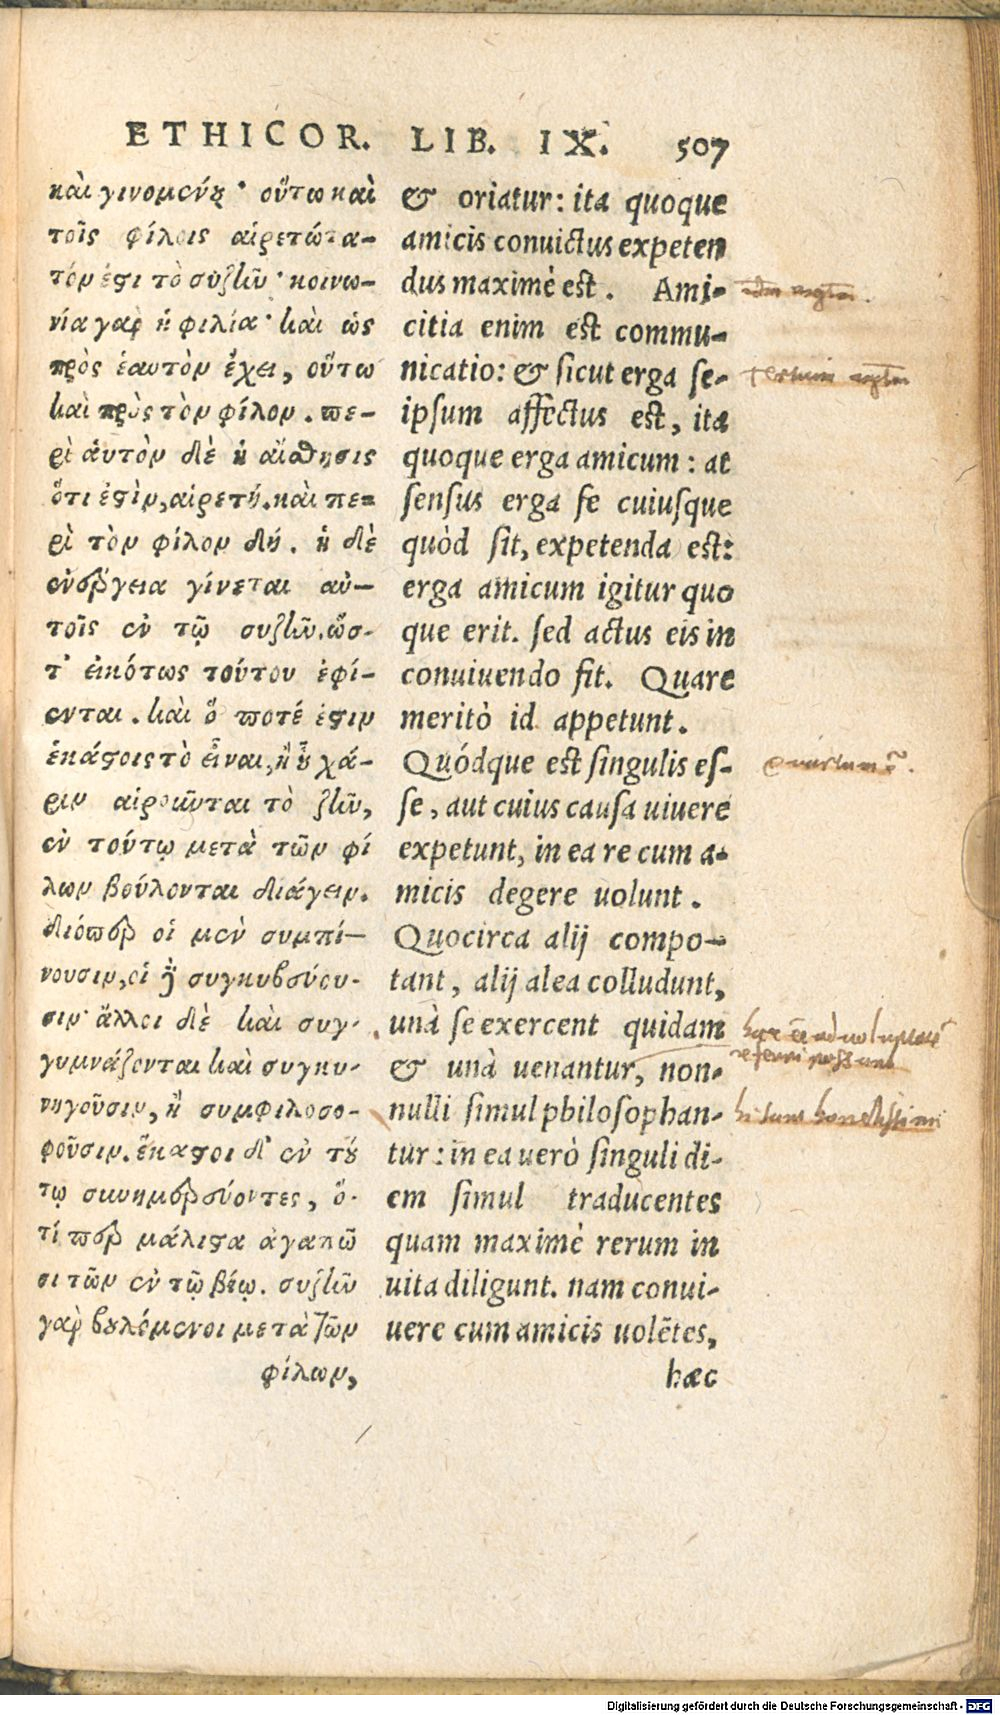 ETHICOR. LIB. IX. 507
καὶ γινομένου· οὕτω καὶ
τοῖς φίλοις αἱρετώτα-
τόν ἐστι τὸ συζῆν· κοινω-
νία γὰρ ἡ φιλία· καὶ ὡς
πρὸς ἑαυτὸν ἔχει, οὕτω
καὶ πρὸς τὸν φίλον. πε-
ρὶ αὑτὸν δὲ ἡ αἴσθησις
ὅτι ἐστὶν, αἱρετή. καὶ πε-
ρὶ τὸν φίλον δή. ἡ δὲ
ἐνέργεια γίνεται αὐ-
τοῖς ἐν τῷ συζῆν. ὥσ-
τ' εἰκότως τούτου ἐφί-
ενται. καὶ ὅ ποτέ ἐστιν
ἑκάστοις τὸ εἶναι, ἢ οὗ χά-
ριν αἱροῦνται τὸ ζῆν,
ἐν τούτῳ μετὰ τῶν φί
λων βούλονται διάγειν.
διόπερ οἱ μὲν συμπί-
νουσιν, οἱ δὲ συγκυβεύου-
σιν· ἄλλοι δὲ καὶ συγ-
γυμνάζονται καὶ συγκυ-
νηγοῦσιν, ἢ συμφιλοσο-
φοῦσιν. ἕκαστοι δ' ἐν τού
τῳ συνημερεύοντες, ὅ-
τί περ μάλιστα ἀγαπῶ
σι τῶν ἐν τῷ βίῳ. συζῆν
γὰρ βουλόμενοι μετὰ τῶν
φίλων,
& oriatur: ita quoque
amicis convictus expeten
dus maximè est. Ami-
citia enim est commu-
nicatio: & sicut erga se-
ipsum affectus est, ita
quoque erga amicum: at
sensus erga se cuiusque
quòd sit, expetenda est:
erga amicum igitur quo
que erit. sed actus eis in
conuiuendo fit. Quare
meritò id appetunt.
Quódque est singulis es-
se, aut cuius causa uiuere
expetunt, in ea re cum a-
micis degere uolunt.
Quocirca alij compo-
tant, alij alea colludunt,
unà se exercent quidam
& unà uenantur, non-
nulli simul philosophan-
tur: in ea uerò singuli di-
em simul traducentes
quam maximè rerum in
uita diligunt. nam conui-
uere cum amicis uolẽtes,
hæc
Tertium
referri possunt
hi sunt honestissimi
Digitalisierung gefördert durch die Deutsche Forschungsgemeinschaft - DFG